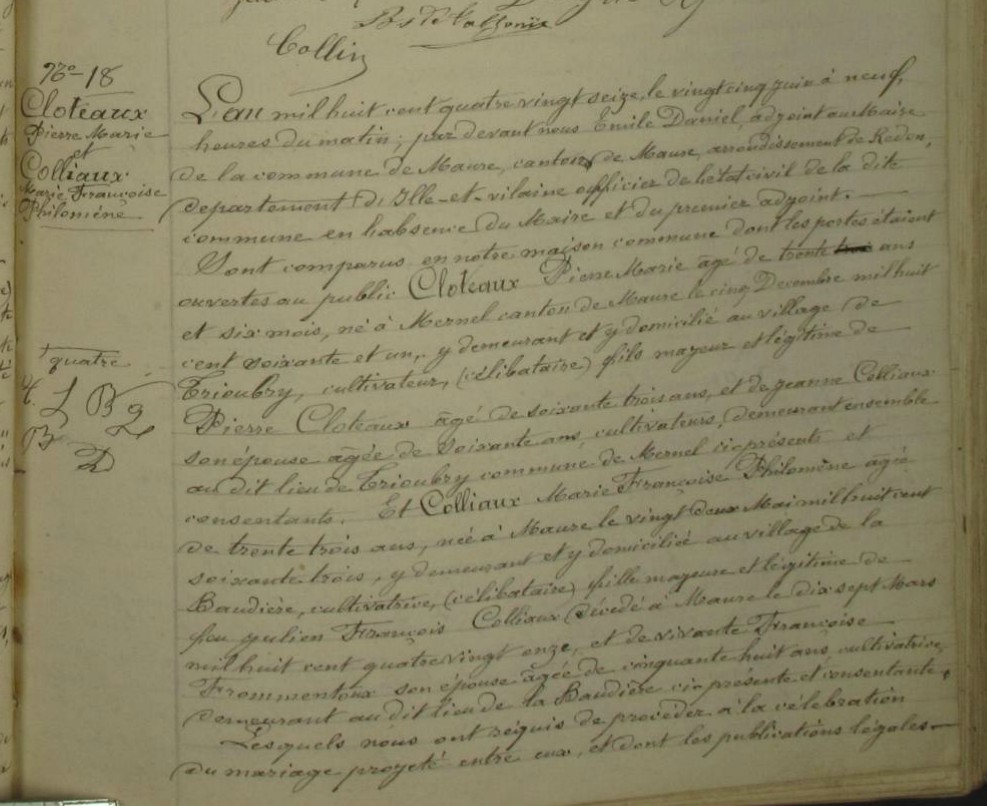 Collin
No-18
Cloteaux
Pierre Marie
et
Colliaux
Marie Françoise
Philomène
L'an mil huit cent quatre vingt seize, le vingt cinq juin à neuf
heures du matin; par devant nous Emile Daniel, adjoint au Maire
de la commune de Maure, canton de Maure, arrondissement de Redon,
département d'Ille-et-vilaine officier de l'etat civil de la dite
commune en l'absence du Maire et du premier adjoint.
Sont comparus en notre maison commune dont les portes étaient
ouvertes au public Cloteaux Pierre Marie âgé de trente trois ans
et six mois, né à Mernel canton de Maure le cinq Décembre mil huit
cent soixante et un, y demeurant et y domicilié au village de
Trioubry, cultivateur, (célibataire) fils majeur et légitime de
Pierre Cloteaux âgé de soixante trois ans, et de Jeanne Colliaux
son épouse âgée de soixante ans, cultivateurs, demeurant ensemble
au dit lieu de Trioubry commune de Mernel ci présents et
consentants. Et Colliaux Marie Françoise Philomène âgée
de trente trois ans, née à Maure le vingt deux Mai mil huit cent
soixante trois, y demeurant et y domiciliée au village de la
Baudière, cultivatrice, (célibataire) fille majeure et légitime de
feu Julien François Colliaux décédé à Maure le dix sept Mars
mil huit cent quatre vingt onze, et de vivante Françoise
Frommentoux son épouse âgée de cinquante huit ans, cultivatrice,
demeurant au dit lieu de la Baudière ci présente et consentante.
Lesquels nous ont requis de procéder à la célébration
du mariage projeté entre eux, et dont les publications légales
quatre